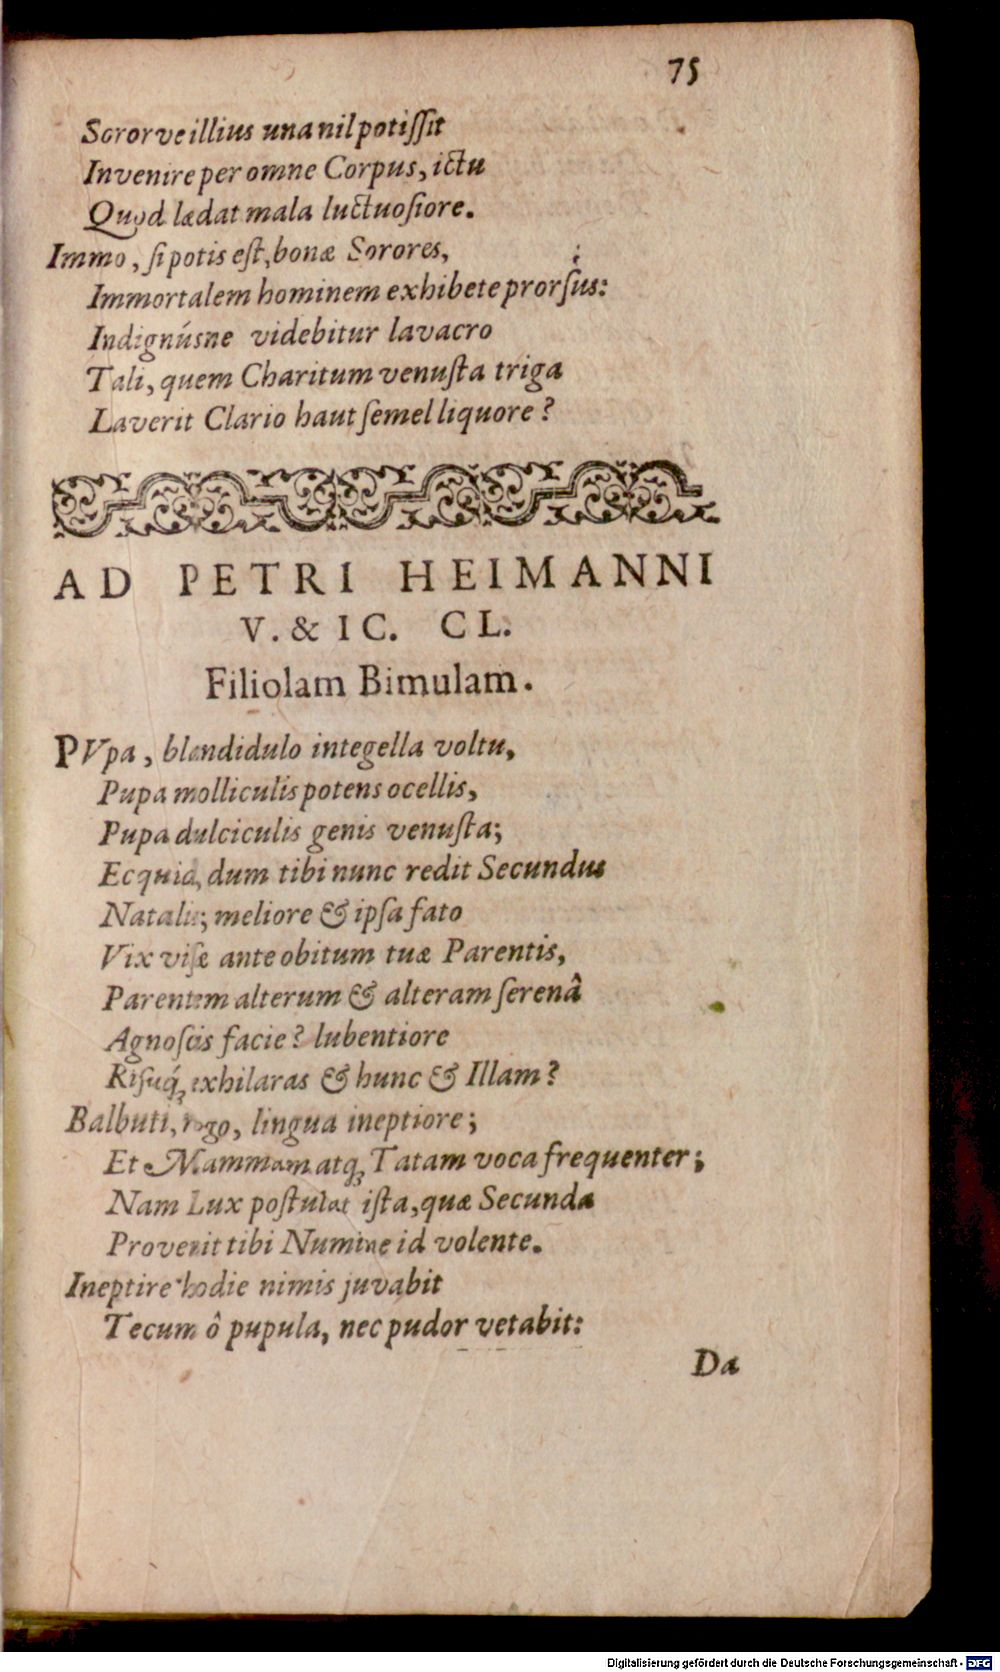 75
Sororve illius una nil potiſſit
Invenire per omne Corpus, ictu
Quod lædat mala luctuoſiore.
Immo, ſi potis eſt, bonæ Sorores,
Immortalem hominem exhibete prorſus:
Indignúsne videbitur lavacro
Tali, quem Charitum venuſta triga
Laverit Clario haut ſemel liquore?
AD PETRI HEIMANNI
V. & IC. CL.
Filiolam Bimulam.
PVpa, blandidulo integella voltu,
Pupa molliculis potens ocellis,
Pupa dulciculis genis venuſta;
Ecquid, dum tibi nunc redit Secundus
Natalis; meliore & ipſa fato
Vix viſæ ante obitum tuæ Parentis,
Parentem alterum & alteram ſerenâ
Agnoſcis facie? lubentiore
Riſuq́; exhilaras & hunc & Illam?
Balbuti, rogo, lingua ineptiore;
Et Mammam atq; Tatam voca frequenter;
Nam Lux poſtulat iſta, quæ Secunda
Provenit tibi Numine id volente.
Ineptire hodie nimis juvabit
Tecum ô pupula, nec pudor vetabit:
Da
Digitalisierung gefördert durch die Deutsche Forschungsgemeinschaft - DFG